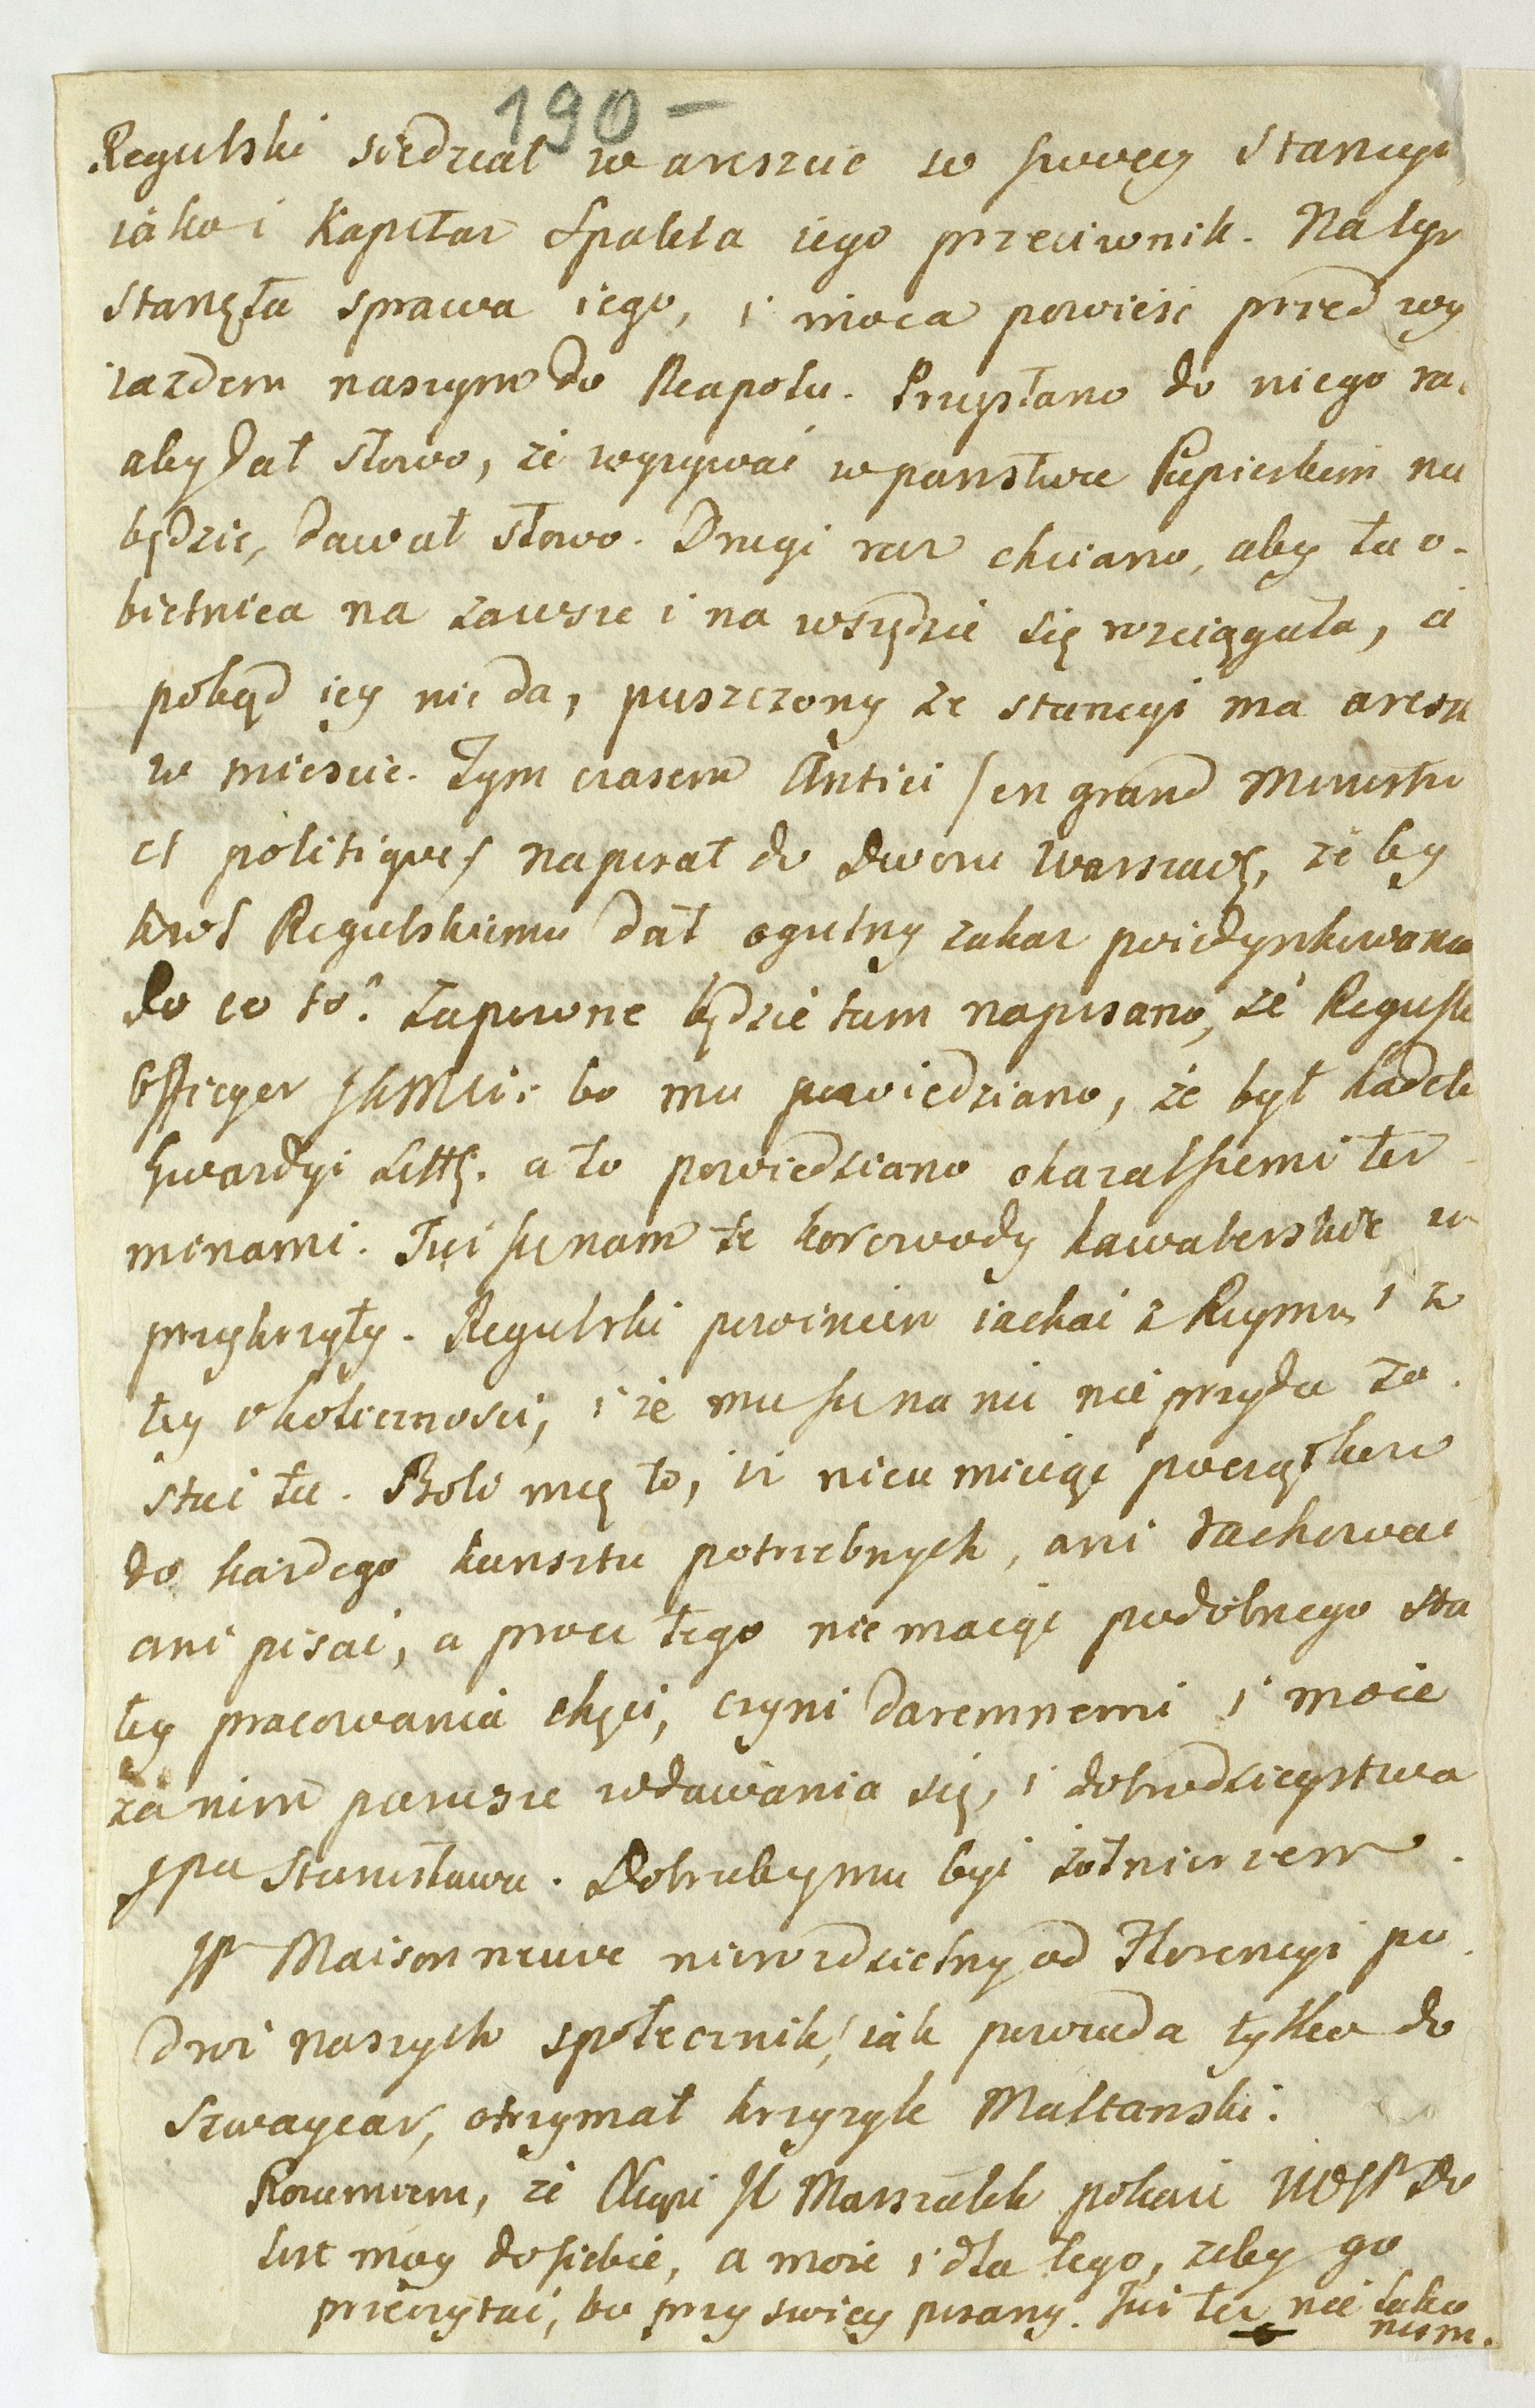 190 -
Regulski siedział w areszcie w swoęy Stancyi
iáko i Kapitan Spaleta iego przeciwnik. Na tym
stanęła sprawa iego, i mocą powieść przed wy
iazdem naszym do Neapolu. Przysłano do niego raz
aby dał słowo, że wyzywać w państwie Papieskim nie
będzie, dawał słowo. Drugi raz chciano, aby ta o-
bietnica na zawsze i na wszędzie się rozciągała, á
pokąd iey nie da, puszczony ze stancyi ma areszt
w mieście. Tym czasem Antici / en grand Ministre
et politique / napisał do dworu Warszaw, żeby
Krol Regulskiemu dał ogulny zakaz poiedynkowania
do co to? Zapewne będzie tam napisano, że Regulski
Officyer JKMci: bo mu powiedziano, że był kadet
Gwardyi Litt. a to powiedziano okazalszemi ter
minami. Już się nam te korowody kawalerskie
przykrzyły. Regulski powinien iechać z Rzymu i z
tey okoliczności, i że mu się na nic nie przyda zo-
stać tu. Boli mię to, iż nieumieiąc początkow
do każdego kunsztu potrzebnych, ani rachować
ani pisać, a procz tego nie maiąc podobnego sta
łey pracowania chęci, czyni daremnemi i moie
za nim zawsze wdawania się, i dobrodzieystwa
Jpa Stanisława. Dobrzeby mu być żołnierzem.
JP Maisonneuve nierozdzielny od Florencyi po
droż naszych społecznik, iak powiada tylko do
Szwaycar, otrzymał krzyżyk Maltanski.
Rozumiem, że Xiąże JM Marszałek pokaże WPP Do
list moy do siebie, a może i dla tego, żeby go
przeczytać, bo przy swięcy pisany. Już też nie tako